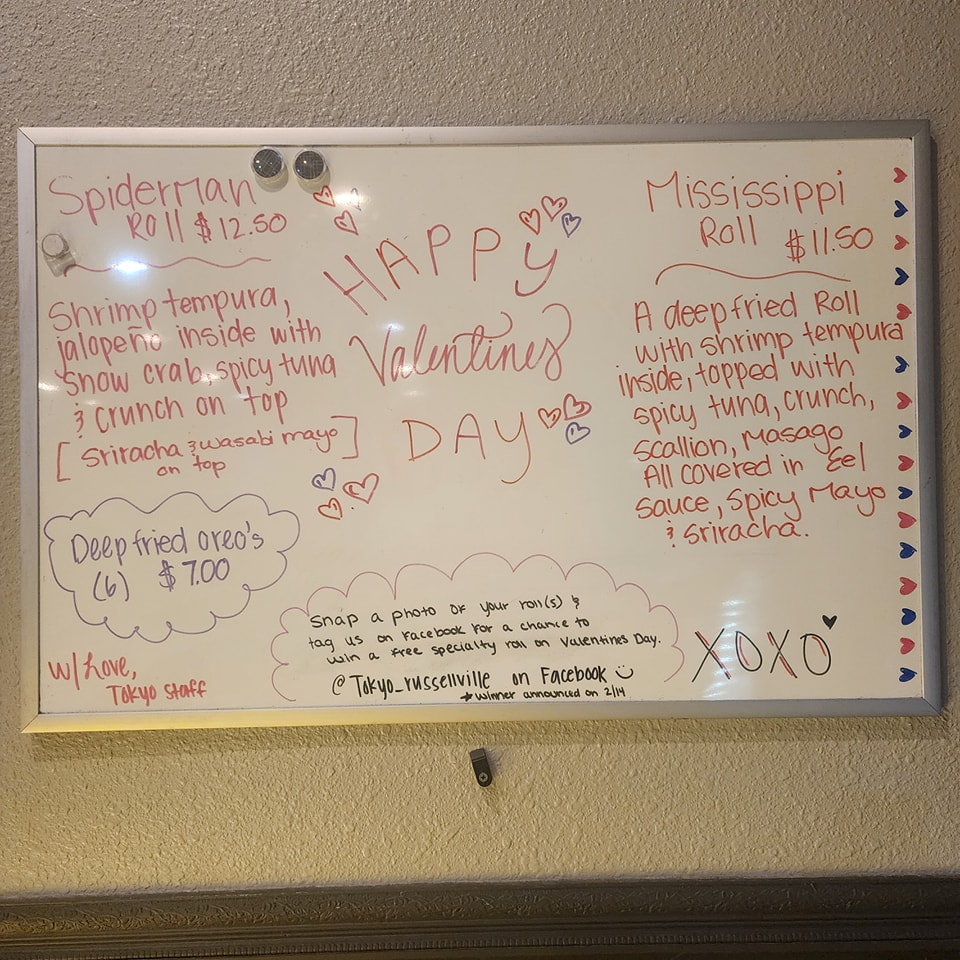 Spiderman
Roll $12.50
Shrimp tempura,
jalopeño inside with
snow crab, spicy tuna
& crunch on top
[sriracha & wasabi mayo
on top]
Deep fried oreo's
(6) $7.00
w/ Love,
Tokyo staff
HAPPY
Valentines
DAY
Snap a photo of your roll(s) &
tag us on Facebook for a chance to
win a free specialty roll on Valentines Day.
@Tokyo_russellville on Facebook
*Winner announced on 2/14
Mississippi
Roll $11.50
A deep fried Roll
with shrimp tempura
inside, topped with
spicy tuna, crunch,
scallion, Masago
All covered in Eel
sauce, spicy Mayo
& sriracha.
XOXO